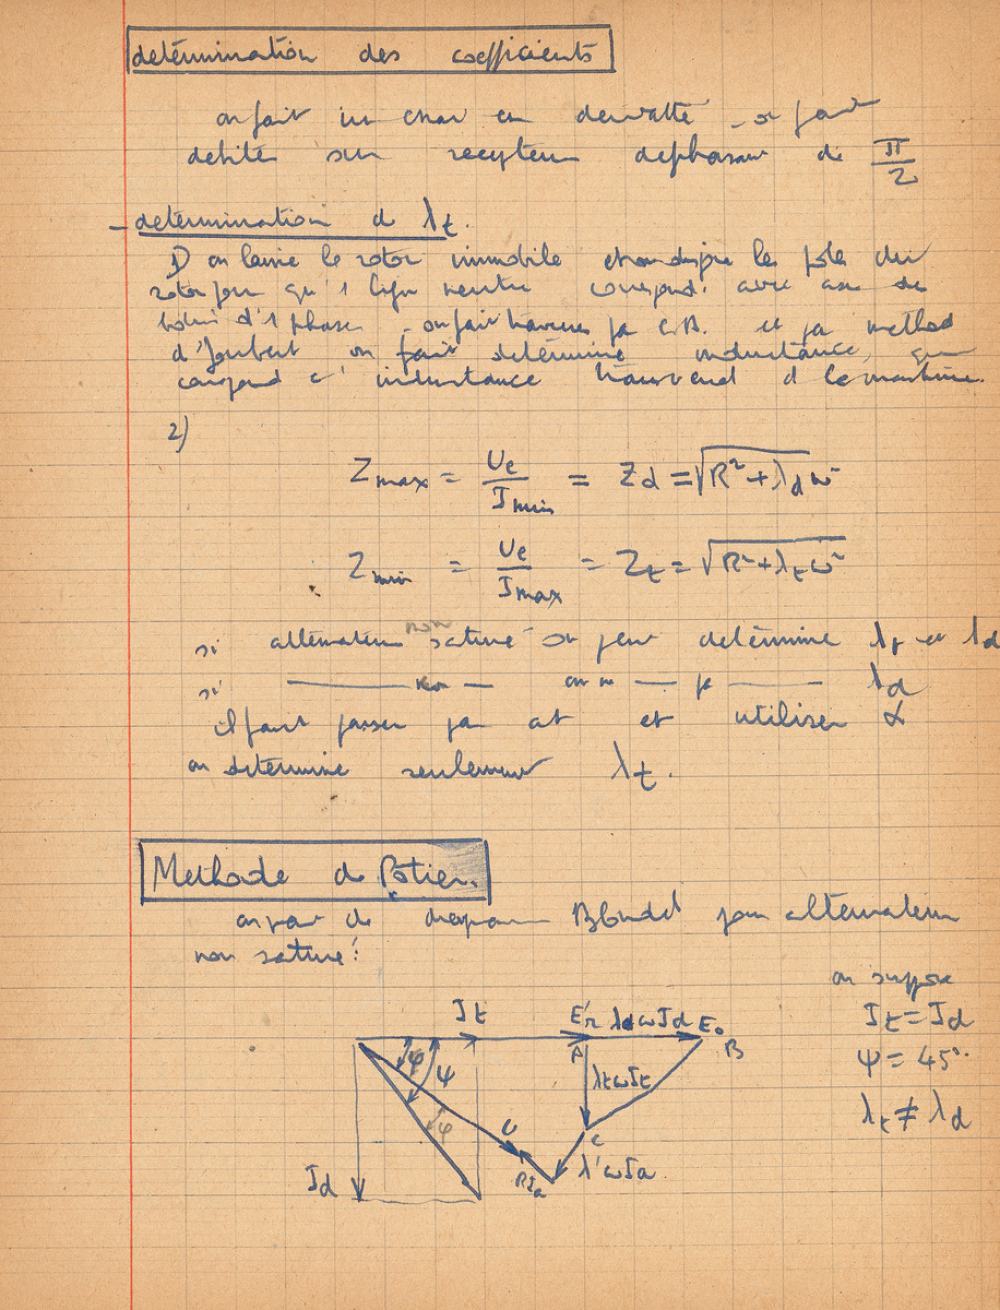 détermination des coefficients
on fait un essai en dewatté _ on fait
débité sur recepteur déphasant de π/2
_ détermination d λt.
1) on laisse le rotor immobile et on dispose les pôles du
rotor pour qu'1 ligne neutre correspd. avec axe de
bobine d'1 phase _ on fait traverser pa C.A. et pa method
d'Joubert on fait déterminé inductance, qui
correspond à l' inductance transversal d la machine.
2)
Zmax = Ue/Imin = Zd = √R²+λdω²
Zmin = Ue/Imax = Zt = √R²+λtω²
si alternateur non saturé on peut détermine λt et λd
si ——— non — on n — p — λd
il faut passer par at et utiliser α
on détermine seulement λt.
Methode de Potier.
on part de diagramme Blondel pour alternateur
non saturé:
on suppose
It = Id
ψ = 45°.
λt ≠ λd
It E'r λdωId E₀
A B
φ ψ λtωIt
φ
U C
Id RIa λ'ωIa